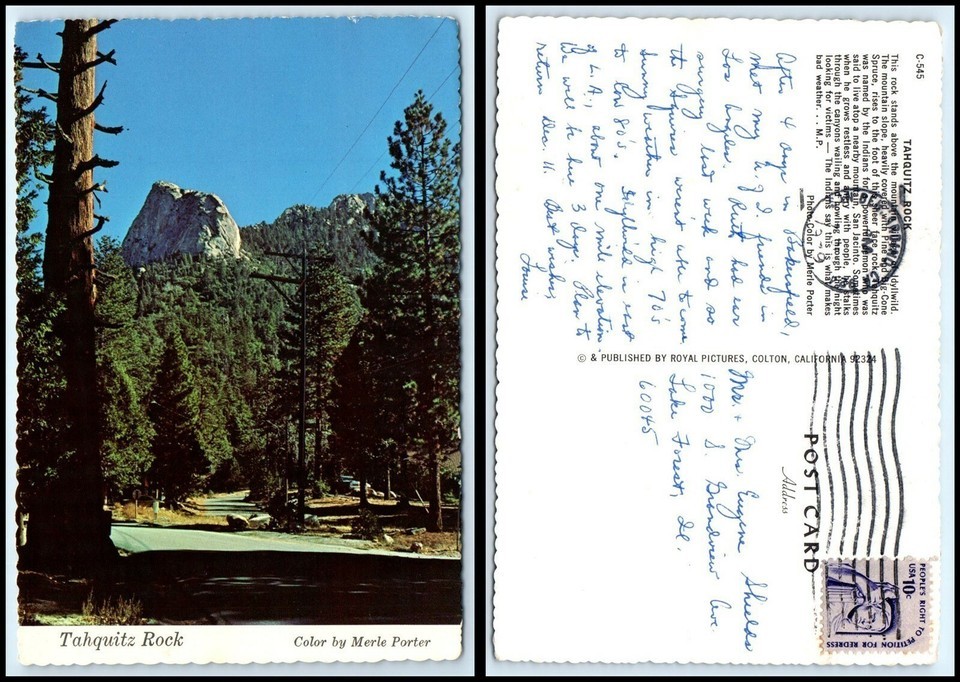 Tahquitz Rock
Color by Merle Porter
C-545
TAHQUITZ ROCK
This rock stands above the mountain village of Idyllwild.
The mountain slope, heavily covered with Pine and Big-Cone
Spruce, rises to the foot of this sheer face rock. Tahquitz
was named by the Indians for a powerful demon who was
said to live atop a nearby mountain, San Jacinto. Sometimes
when he grows restless and angry with people, he stalks
through the canyons wailing and howling through the night
looking for victims — The Indians say this is what makes
bad weather. . . . M.P.
Photo Color by Merle Porter
After 4 days in Bakersfield,
met my H. J. friends in
Los Angeles. Ruth had ear
surgery last week and so
the Squires went where to come
Sunny weather in high 70's
to low 80's. Idyllwild is east
of L.A., about one mile elevation.
We will be here 3 days. Plan to
return Dec. 11. Best wishes,
Louise
© & PUBLISHED BY ROYAL PICTURES, COLTON, CALIFORNIA 92324
POST CARD
Address
Mr. + Mrs. Eugene Shields
1000 S. Grandview Ave.
Lake Forest, Il.
60045
PEOPLE'S RIGHT TO
PETITION FOR REDRESS
USA 10c